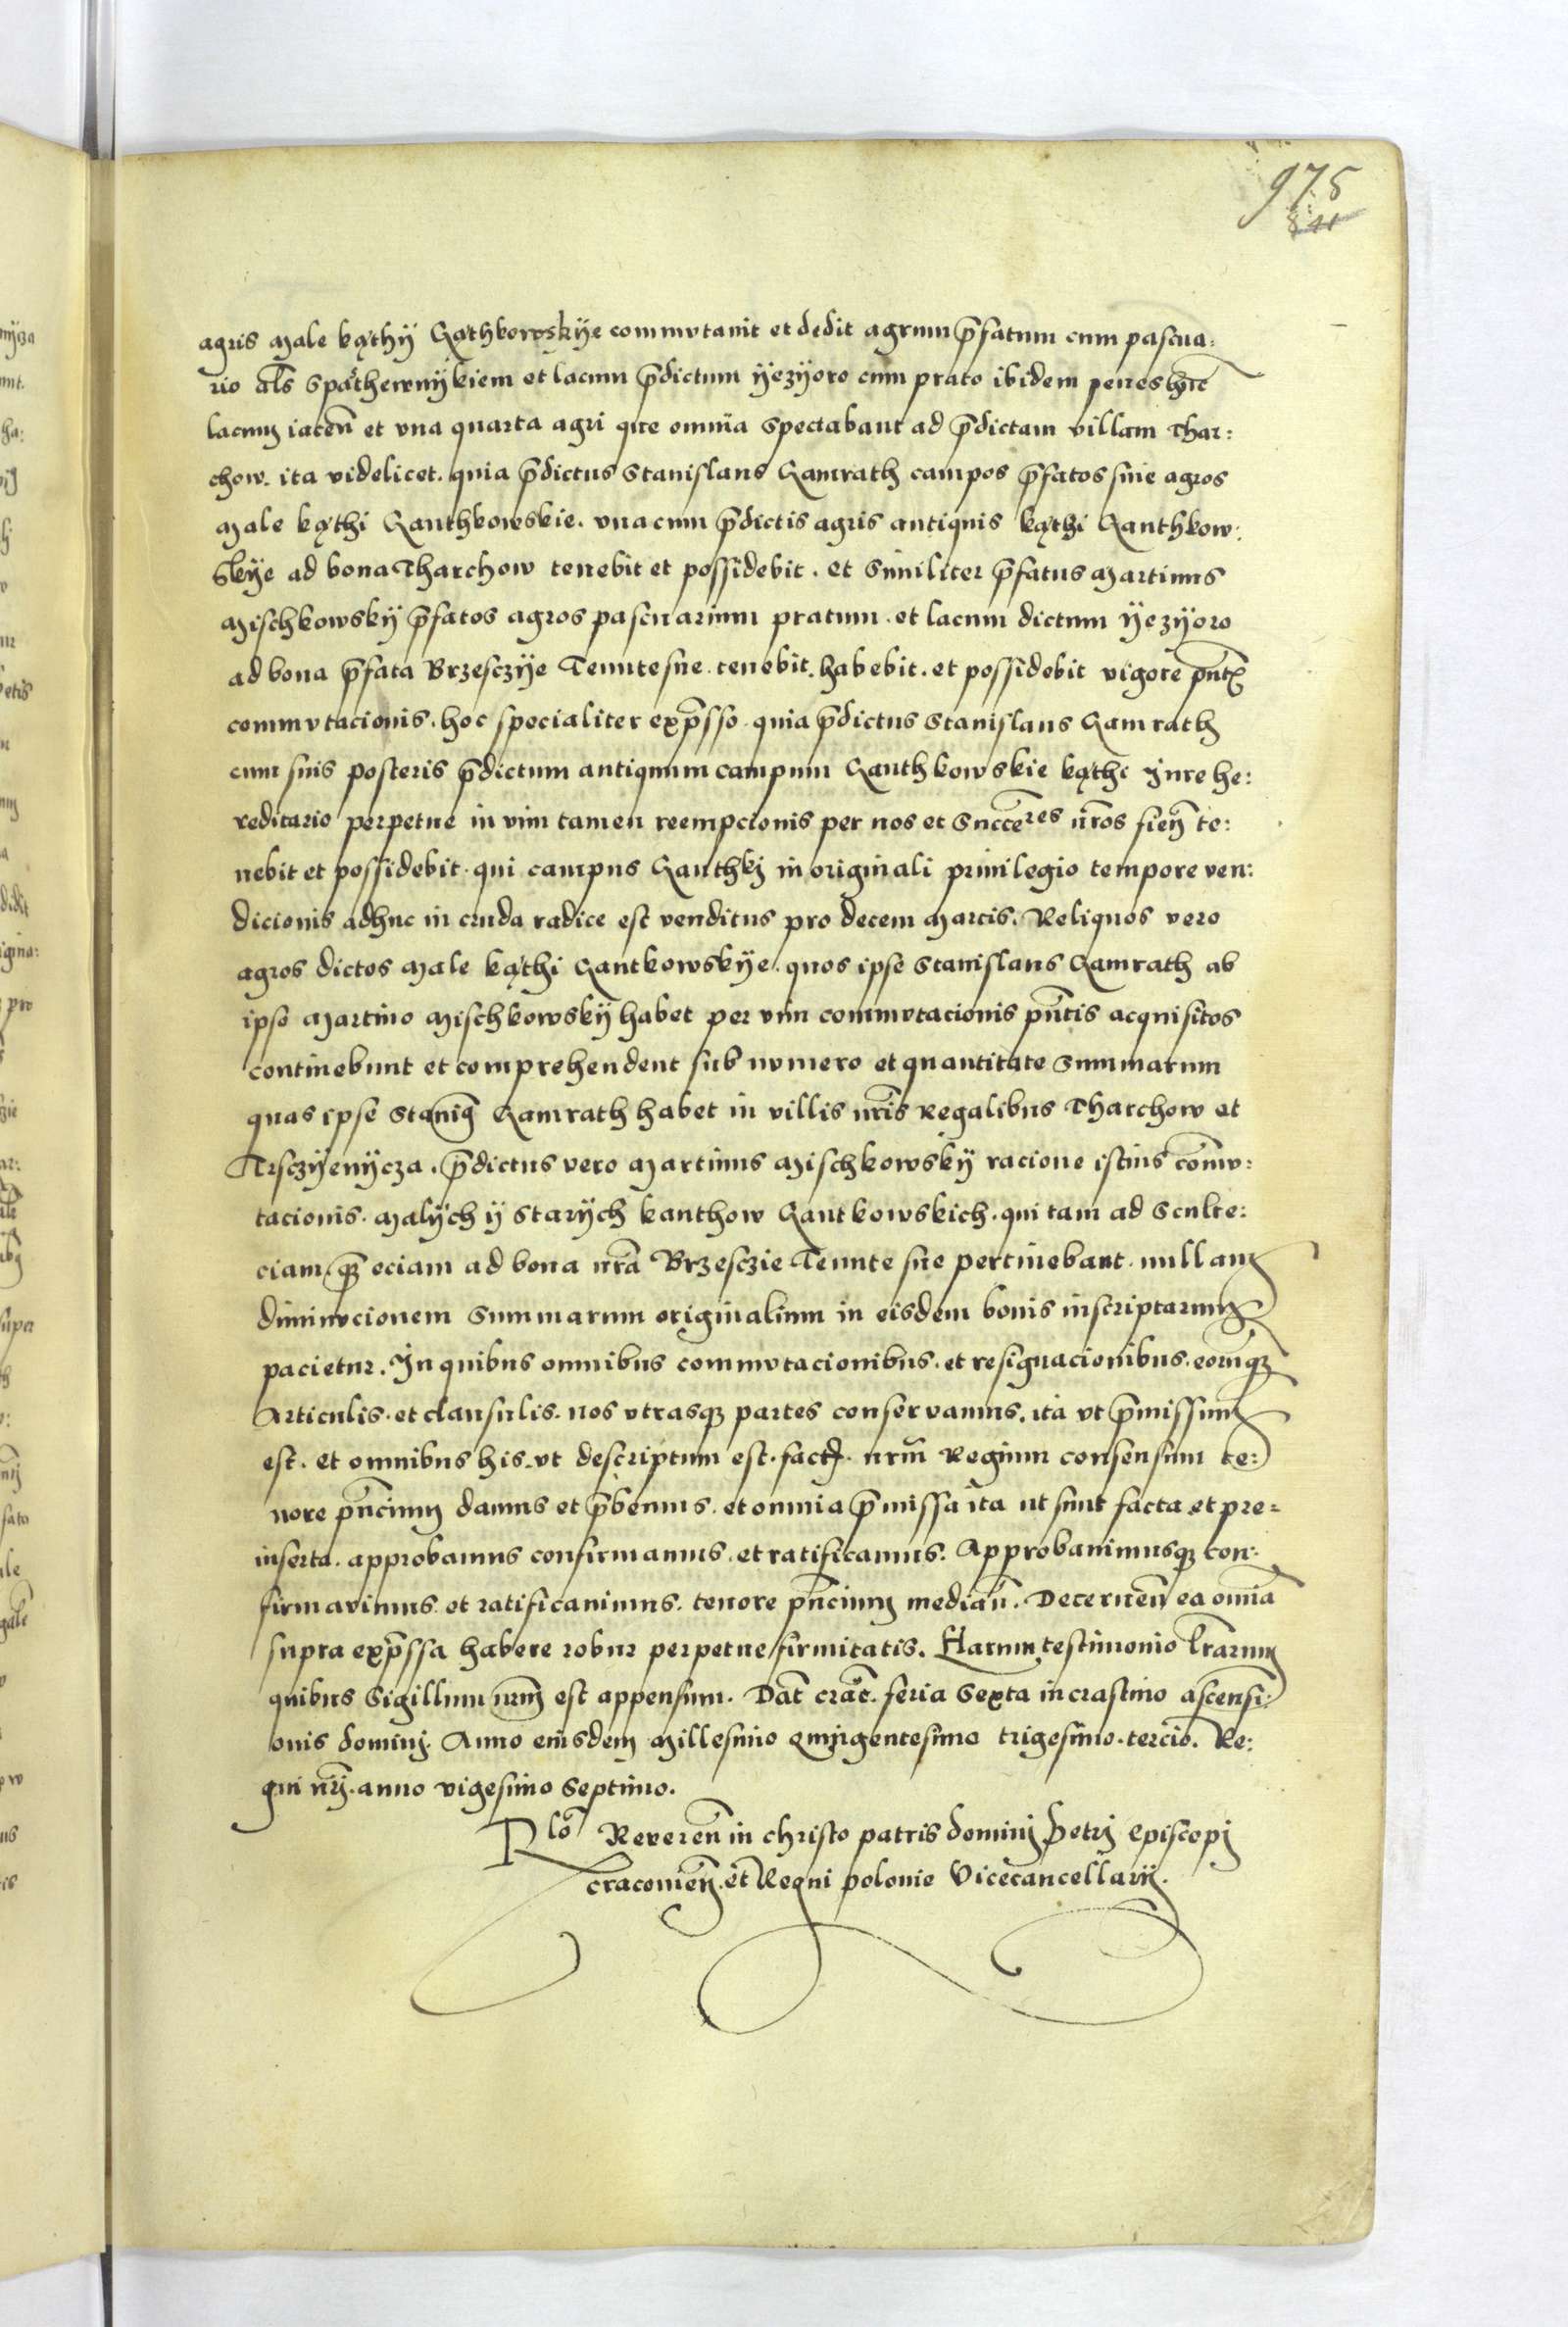 975
841
agris Male kąthy Gąthkowskye commvtavit et dedit agrum p̄fatum cum pascua:
rio al̄s Spąthewnykiem et lacum p̄dictum yezyoro cum prato ibidem penes hūc
lacum iaceñ et vna quarta agri que omnia spectabant ad p̄dictam villam Thar:
chow. ita videlicet. quia p̄dictus Stanislaus Gamrath campos p̄fatos siue agros
Male kąthi Ganthkowskie. vnacum p̄dictis agris antiquis kąthi Ganthkow:
skye ad bona Tharchow tenebit et possidebit. et similiter p̄fatus Martinus
Mischkowsky p̄fatos agros pascuarium pratum. et lacum dictum yezyoro
ad bona p̄fata Brzesczye Tenutesue. tenebit. habebit. et possidebit vigore pñt
commvtacionis. hoc specialiter exp̄sso. quia p̄dictus Stanislaus Gamrath
cum suis posteris p̄dictum antiquum campum Ganthkowskie kąthi Jure he:
reditario perpetue in vim tamen reempcionis per nos et Succ̄res nr̄os fieñ te:
nebit et possidebit. qui campus Ganthkj in originali priuilegio tempore ven:
dicionis adhuc in cruda radice est venditus pro decem Marcis. Reliquos vero
agros dictos Male kąthi Gantkowskye. quos ipse Stanislaus Gamrath ab
ipso Martino Mischkowsky habet per vim commvtacionis pñtis acquisitos
continebunt et comprehendent sub nvmero et quantitate Summarum
quas ipse Stani. Gamrath habet in villis nr̄is Regalibus Tharchow et
Trsczyenycza. p̄dictus vero Martinus Mischkowsky racione istius com̄v:
tacionis. Malych y starych kanthow Gantkowskich. qui tam ad Sculte:
ciam. q̄z eciam ad bona nr̄a Brzesczie Tenute sue pertinebant. nullam
diminvcionem Summarum originalium in eisdem bonis inscriptarum
pacietur. In quibus omnibus commvtacionibus. et resignacionibus. eorumq̄z
Articulis. et clausulis. nos vtrasqz partes conservamus. ita vt p̄missum
est. et omnibus his vt descriptum est. fact. nr̄m Regium consensum te:
nore pñcium damus et p̄bemus. et omnia p̄missa ita ut sunt facta et pre=
inserta. approbamus confirmamus. et ratificamus. Approbauimusqz con:
firmavimus. et ratificauimus. tenore pñcium mediañ. Decerneñ ea om̄ia
supra exp̄ssa habere robur perpetue firmitatis. Harum testimonio lr̄arum
quibus Sigillum nr̄m est appensum. Dat̄ crac̄. feria Sexta in crastino ascensi:
onis dominj. Anno eiusdem Millesimo Quingentesimo trigesimo. tercio. Re:
gni nr̄j. anno vigesimo Septimo.
Rlō Revereñ in christo patris dominj Petrj Episcopj
cracovieñ. et Regni polonie Vicecancellarij.